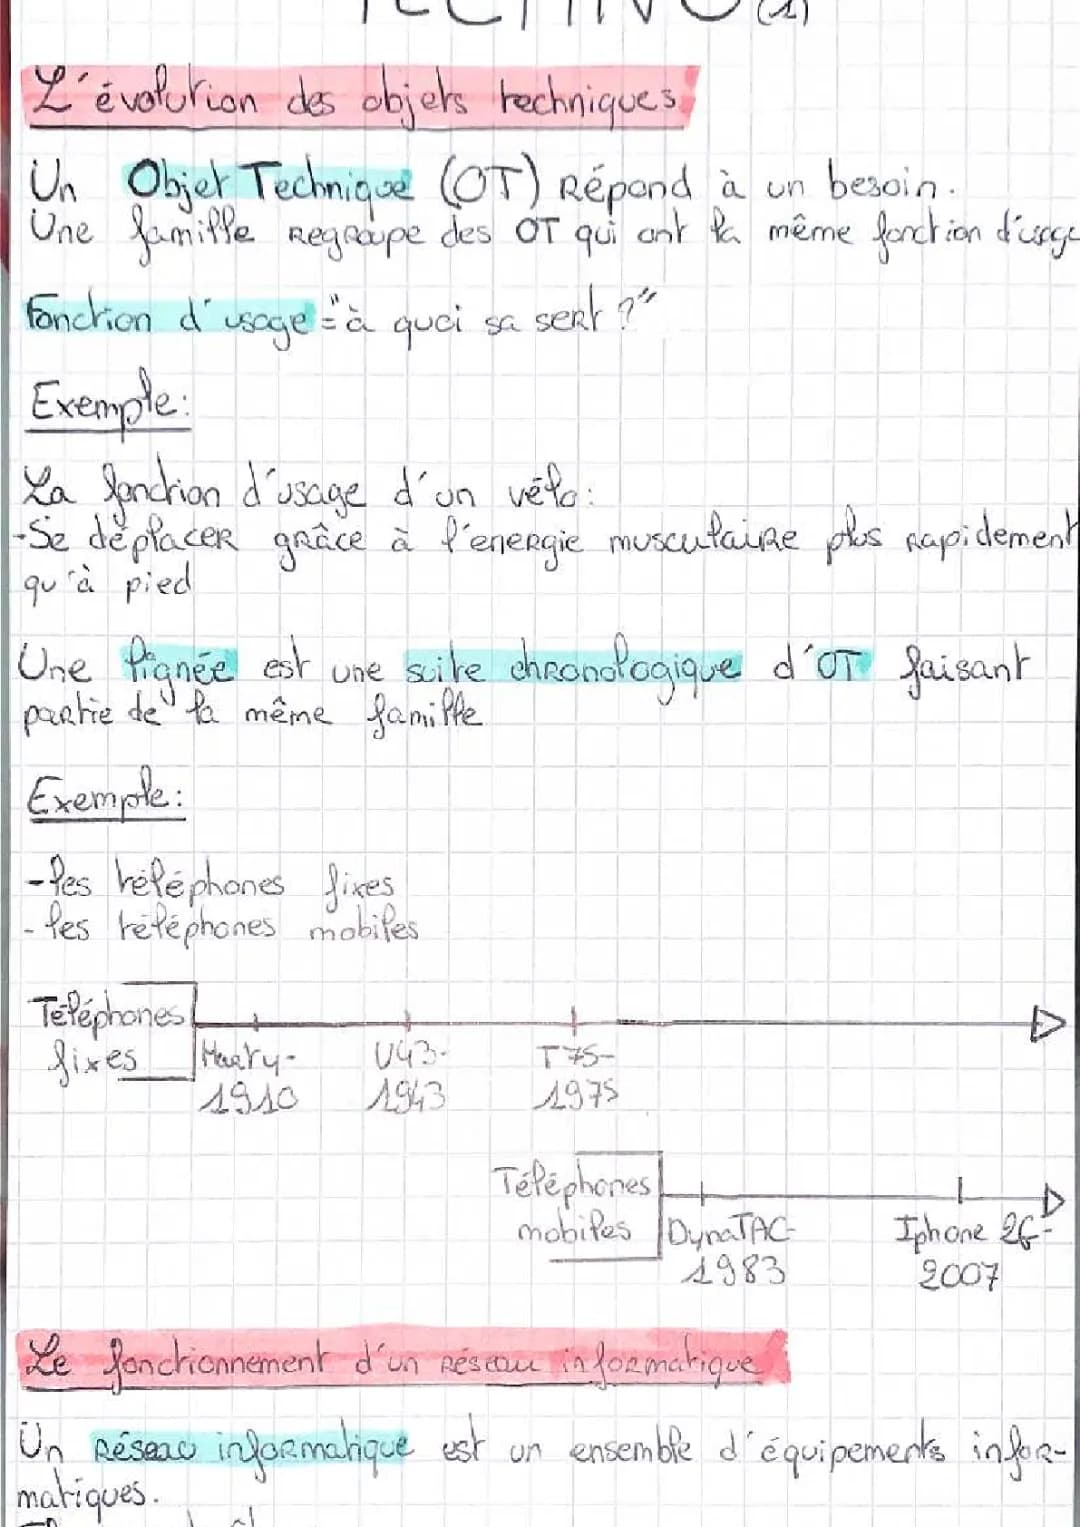 TECHNO (1)
L'évolution des objets techniques:
Un Objet Technique (OT) Répond à un besoin.
Une famille Regroupe des OT qui ont la même fonction d'usage
Fonction d'usage = "à quoi sa sert ?"
Exemple:
La fonction d'usage d'un vélo:
-Se déplacer grâce à l'énergie musculaire plus rapidement
qu'à pied
Une lignée est une suite chronologique d'OT faisant
partie de la même famille
Exemple:
-les téléphones fixes
-les téléphones mobiles
Téléphones
fixes
Marty-
1910
U43-
1943
T75-
1975
Téléphones
mobiles
DynaTAC-
1983
Iphone 2G-
2007
Le fonctionnement d'un réseau informatique
Un Réseau informatique est un ensemble d'équipements infor-
matiques.